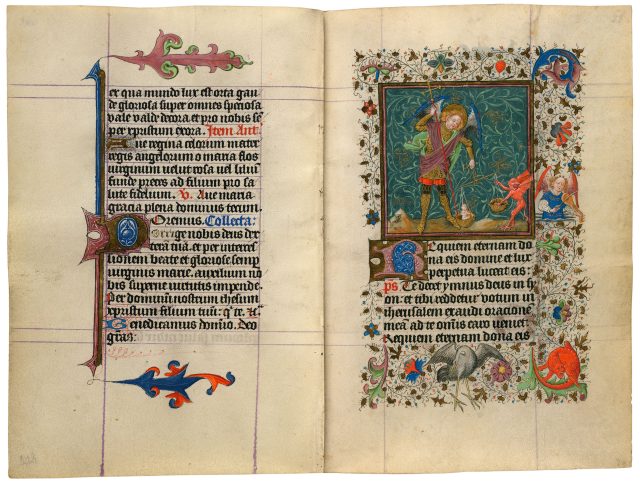 ex qua mundo lux est orta gau
de gloriosa super omnes speciosa
vale valde decora et pro nobis se
per xpristum exora. Item Ant.
Aue regina celorum mater
regis angelorum o maria flos
uirginum uelut rosa uel lilium
funde preces ad filium pro sa
lute fidelium. V. Aue maria
gracia plena dominus tecum.
Oremus. Collecta:
Porrige nobis deus dex
teram tuam et per interces
sionem beate et gloriose semper
uirginis marie. auxilium no
bis superne uirtutis impende.
Per dominum nostrum ihesum
xpristum filium tuum: q
Benedicamus domino. Deo
gratias:
Requiem eternam do
na eis domine et lux
perpetua luceat eis:
ps Te decet ymnus deus in sy
on: et tibi reddetur votum in
iherusalem exaudi oracionem
meam ad te omnis caro veniet:
Requiem eternam dona eis